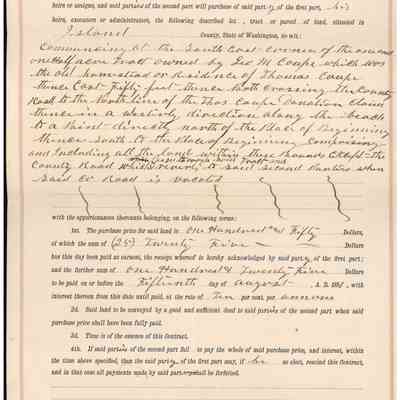 heirs or assigns, and said parties of the second part will purchase of said party of the first part, his
heirs, executors or administration, the following described lot , tract or parcel of land, situated in
Island County, State of Washington, to wit:
Commencing at the South East corner of the
one Half acre Tract owned by Geo M Coupe which was
the old homestead or Residence of Thomas Coupe
thence East Fifty feet thence North crossing the County
Road to the North line of the Thos Coupe Donation Claim
thence in a westerly direction along the beach
to a Point directly north of the Place of Beginning
thence South to the Place of Beginning Comprising
and Including all the land within these bounds Except the
County Road which reverts to said second Parties when
said Co Road is vacated
with the appurtenances thereunto belonging, on the following terms:
1st. The purchase price for said land is One Hundred and Fifty Dollars
of which the sum of (25) Twenty Five Dollars
has this day been paid as earnest, the receipt whereof is hereby acknowledged by said party of the first part;
and the further sum of One Hundred & Twenty Five Dollars
to be paid on or before the Fifteenth day of August , A. D. 189 , with
interest thereon from this date until paid, at the rate of Ten per cent. per annum
2d. Said land to be conveyed by a good and sufficient deed to said parties of the second part when said
purchase price shall have been fully paid.
3d. Time is of the essence of this Contract.
4th. If said parties of the second part fail to pay the whole of said purchase price, and interest, within
the time above specified, than the said party of the first part may, if he so elect, rescind this Contract,
and in that case all payments made by said part shall be forfeited.